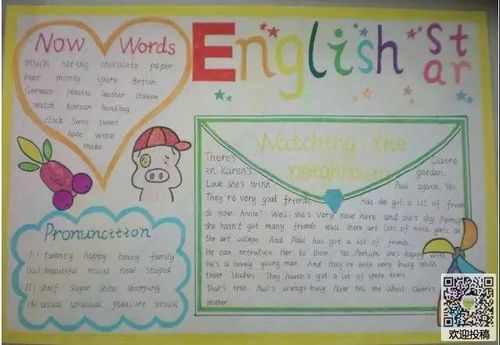 Now Words
much spring chocolate paper
over money spare British
German plastic leather Italian
match Korean handbag
clock Swiss sweet
note write
make
English Star
Watching the
neighbours
There's Claire
in Karen's garden.
Look she's with Paul again. Yes.
They're very good friends. Has she got a lot of frien
ds now, Annie? Well, she's very new here and she's shy. Penny
she hasn't got many friends. Well there are lots of nice girls at
the art college. And Paul has got a lot of friends.
He can introduce her to them. Yes. Perhaps she's happy with
he's a lovely young man. And they're both very busy with
their studies. They haven't got a lot of spare time.
That's true. Paul's always busy. Now tell me about Owen's
mother.
Pronuncition
twenty happy heavy family
beautiful music new stupid
shelf sugar show shopping
usual unusual pleasure visual
欢迎投稿